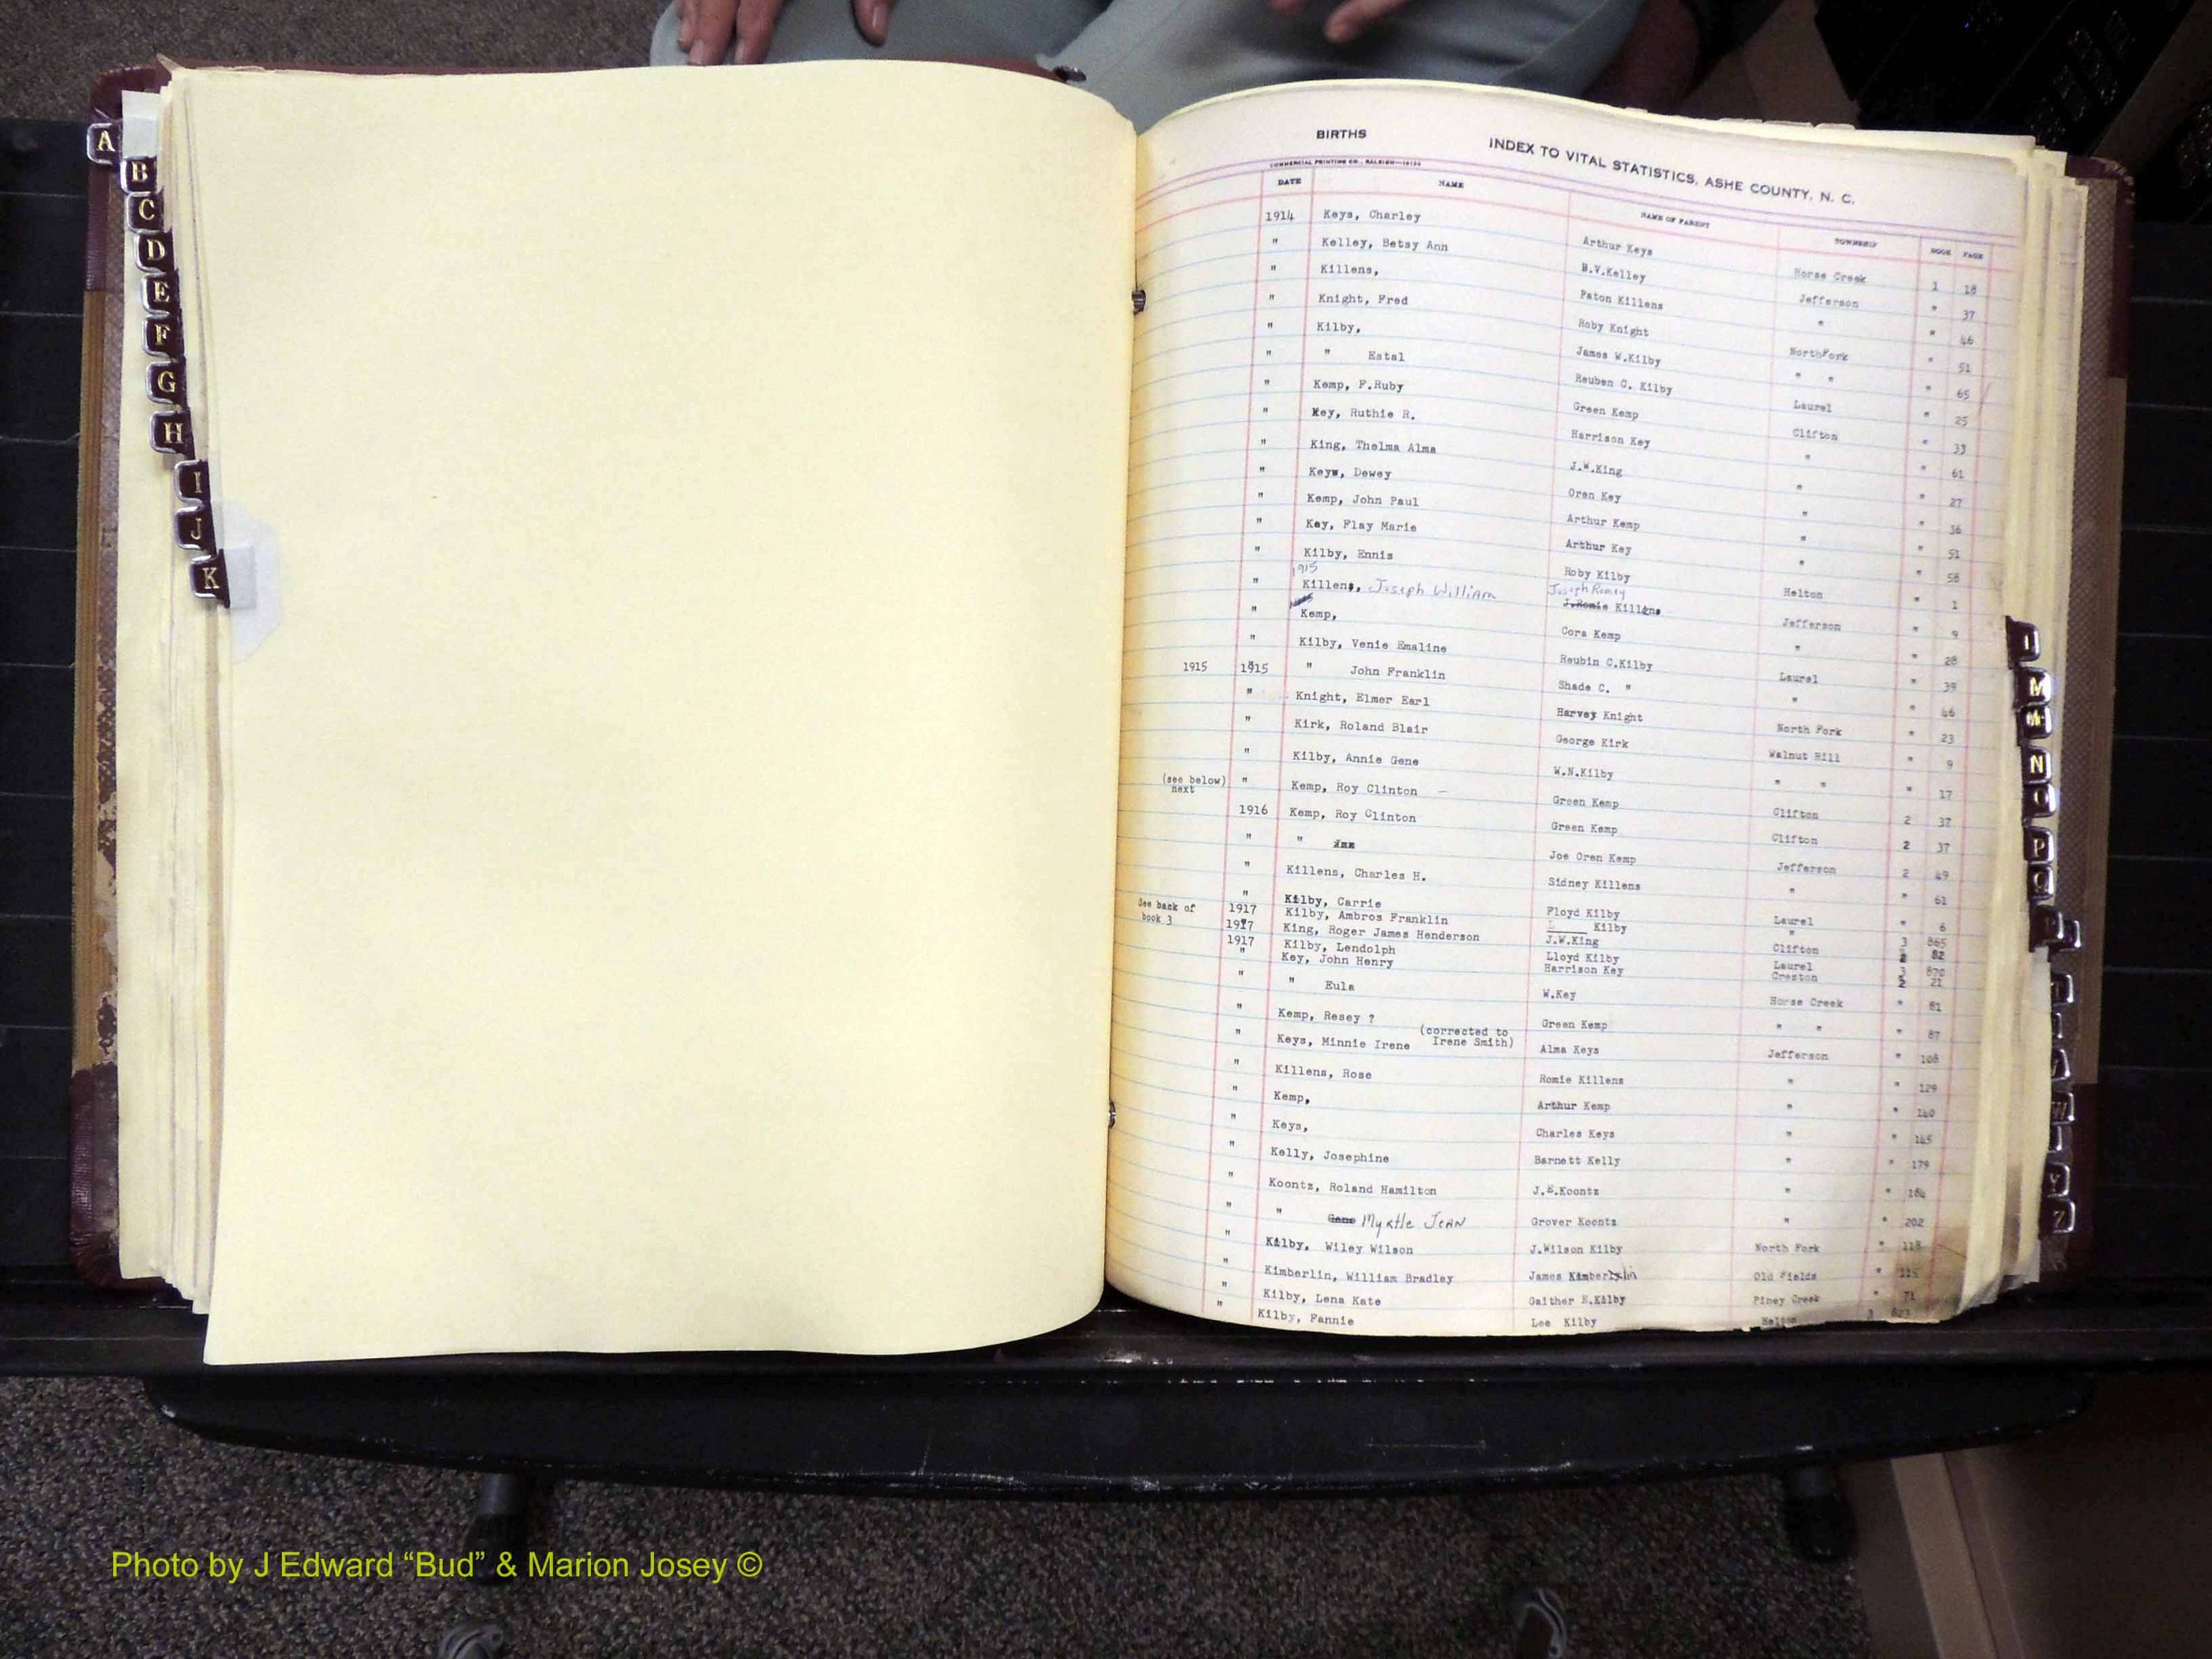 A
B
C
D
E
F
G
H
I
J
K
BIRTHS INDEX TO VITAL STATISTICS, ASHE COUNTY, N. C.
COMMERCIAL PRINTING CO., RALEIGH
DATE NAME NAME OF PARENT TOWNSHIP BOOK PAGE
1914 Keys, Charley Arthur Keys Horse Creek 1 18
" Kelley, Betsy Ann B.V.Kelley Jefferson " 37
" Killens, Paton Killens " " 46
" Knight, Fred Roby Knight NorthFork " 51
" Kilby, James W.Kilby " " " 65
" " Estal Reuben C. Kilby Laurel " 25
" Kemp, F.Ruby Green Kemp Clifton " 33
" Key, Ruthie R. Harrison Key " " 61
" King, Thelma Alma J.W.King " " 27
" Keys, Dewey Oren Key " " 36
" Kemp, John Paul Arthur Kemp " " 51
" Key, Flay Marie Arthur Key " " 58
" Kilby, Ennis Roby Kilby Helton " 1
1915
" Killens, Joseph William Joseph Romey J.Romie Killens Jefferson " 9
" Kemp, Cora Kemp " " 28
" Kilby, Venie Emaline Reubin C.Kilby Laurel " 39
1915 1915 " John Franklin Shade C. " " " 46
" Knight, Elmer Earl Harvey Knight North Fork " 23
" Kirk, Roland Blair George Kirk Walnut Hill " 9
" Kilby, Annie Gene W.N.Kilby " " " 17
(see below) next " Kemp, Roy Clinton — Green Kemp Clifton 2 37
1916 Kemp, Roy Clinton Green Kemp Clifton 2 37
" " Joe Oren Kemp Jefferson 2 49
" Killens, Charles H. Sidney Killens " 61
" Kilby, Carrie Floyd Kilby Laurel " 6
See back of book 3 1917 Kilby, Ambros Franklin Kilby " 3 865
1917 King, Roger James Henderson J.W.King Clifton 82
1917 Kilby, Lendolph Lloyd Kilby Laurel 3 870
" Key, John Henry Harrison Key Creston 2 21
" " Eula W.Key Horse Creek " 81
" Kemp, Resey ? Green Kemp " " " 87
" Keys, Minnie Irene (corrected to Irene Smith) Alma Keys Jefferson " 108
" Killens, Rose Romie Killens " " 129
" Kemp, Arthur Kemp " " 140
" Keys, Charles Keys " " 145
" Kelly, Josephine Barnett Kelly " " 179
" Koontz, Roland Hamilton J.E.Koontz " " 184
" " Gene Myrtle Jean Grover Koontz " " 202
" Kilby, Wiley Wilson J.Wilson Kilby North Fork " 118
" Kimberlin, William Bradley James Kimberlin Old Fields "
" Kilby, Lena Kate Gaither E.Kilby Piney Creek " 71
" Kilby, Fannie Lee Kilby Helton 3 823
M
Mc
N
O
P
Q
R
W
Y
Z
Photo by J Edward “Bud” & Marion Josey ©